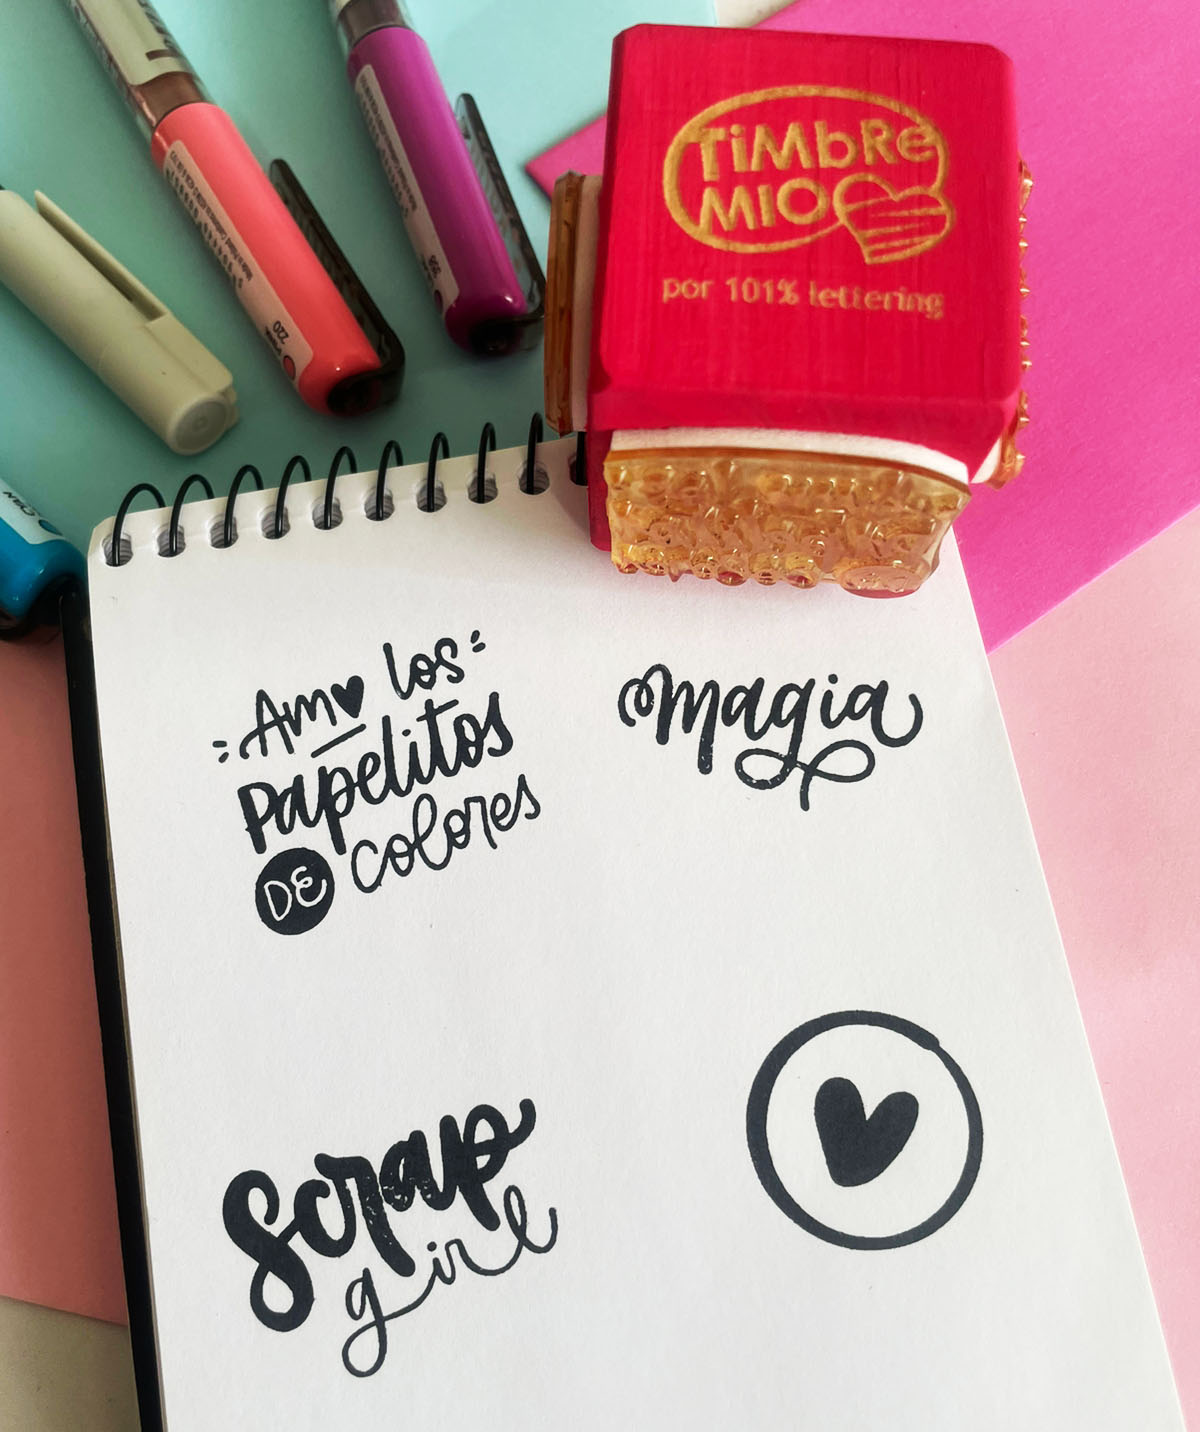 TiMbRe
MIO
por 101% lettering
220
Amo los
Papelitos
DE colores
magia
Scrap
girl